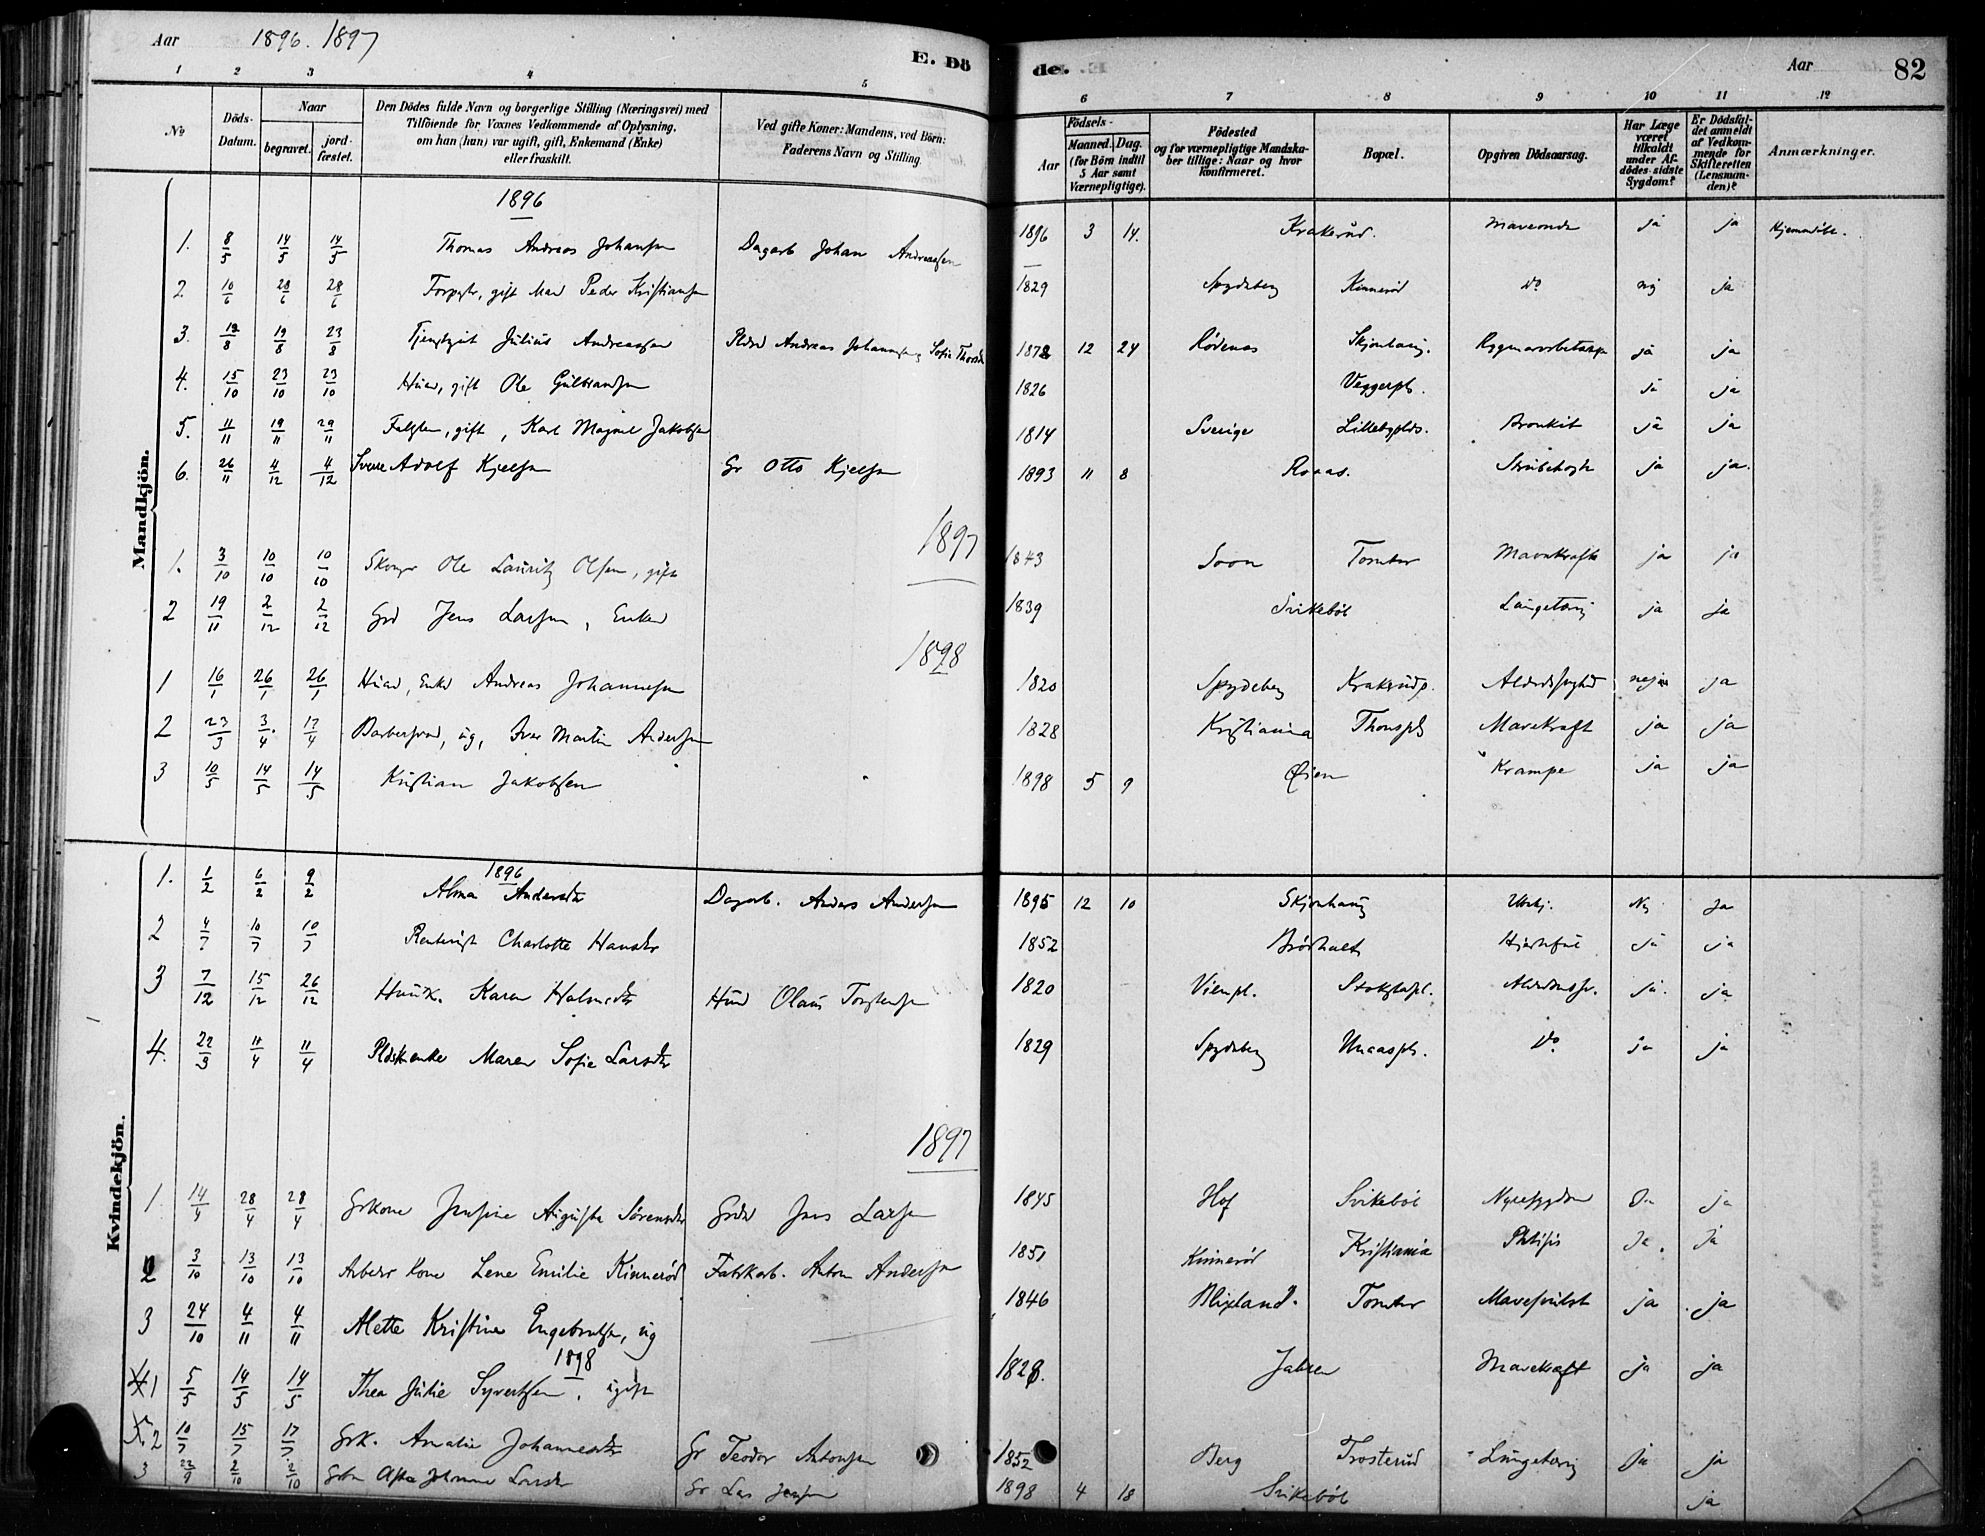 Aar 1896. 1897
E. Dö
de.
Aar
82
1 2 3 4 5 6 7 8 9 10 11 12
No
Döds-Datum.
Naar
begravet. jordfæstet.
Den Dödes fulde Navn og borgerlige Stilling (Næringsvei) med
Tilföiende for Voxnes Vedkommende af Oplysning,
om han (hun) var ugift, gift, Enkemand (Enke)
eller fraskilt.
Ved gifte Koner: Mandens, ved Börn:
Faderens Navn og Stilling.
Födsels-
Aar Maaned. Dag.
(for Börn indtil
5 Aar samt
Værnepligtige).
Födested
og for værnepligtige Mandska-
ber tillige: Naar og hvor
konfirmeret.
Bopæl.
Opgiven Dödsaarsag.
Har Læge
været
tilkaldt
under Af-
dödes sidste
Sygdom?
Er Dödsfal-
det anmeldt
af Vedkom-
mende for
Skifteretten
(Lensman-
den)?
Anmærkninger.
Mandkjön.
1896
1. 8/5 14/5 14/5 Thomas Andreas Johansen Dagarb Johan Andreassen 1896 3 14. Krakerud. ja ja Hjemmedöbt.
2. 10/6 28/6 28/6 gift Peder Kristiansen 1829 Spydeberg Kinneröd Do nej ja
3. 19/8 23/8 Julius Andreassen Andreas 1872 12 24 Rödenes Skjönhaug. ja ja
4. 15/10 23/10 23/10 Husm, gift Ole Gulbrandsen 1826 ja ja
5. 11/11 19/11 29/11 gift, Karl Magnus Jakobsen 1814 Sverige Bronkit ja ja
6. 26/11 4/12 4/12 Sverre Adolf Kjelsen Gr Otto Kjelsen 1893 11 8 Ronas. Strubehoste ja ja.
1897
1. 3/10 10/10 10/10 Ole Lauritz Olsen, gift 1843 Soon Tomter Mavekræft ja ja
2 19/11 2/12 2/12 Grd Jens Larsen, Enkem 1839 Svikeböl Lungetæring ja ja
1898
1 16/1 26/1 26/1 Husm, Enkm Andreas Johannesen 1820 Spydeberg Krakrudp. nej ja
2 23/3 3/4. 17/4 ug, Iver Martin Andersen 1828 Kristiania Mavekræft ja ja
3 10/5 14/5 14/5 Kristian Jakobsen 1898 5 9 Öien Krampe ja ja
Kvindekjön.
1896
1. 1/2 6/2 9/2 Alma Andersdtr Dagarb. Anders Andersen 1895 12 10 Skjönhaug Ubekj. Nej Ja
2 4/7 10/7 10/7 Charlotte Hansdtr 1852 Brösholt Hjertefeil ja ja
3 7/12 15/12 26/12 Karen Halvorsdtr Husm Olaus Torstensen 1820 Vienpl. ja ja
4. 22/3 11/4 11/4 Pldsenke Maren Sofie Larsdtr 1829 Spydeberg Unaaspl. Do ja ja
1897
1. 14/4 28/4 28/4 Grkone Josefine Augusta Sörensdtr Grdm Jens Larsen 1845 Hof Svikeböl Nyresygdom Ja ja
2 3/10 13/10 13/10 Arbeder kone Lene Emilie Kinneröd Fabrkarb. Anton Andersen 1851 Kinneröd Kristiania Phtisis Ja. Ja
3 24/10 4/11 4/11 Alette Kristine Engebretsen, ug 1846 Blixland. Tomter Mavesvulst ja ja
1898
4 1 5/5 14/5 14/5 Thea Julie Syvertsen, ugift 1828. Jahren Mavekræft ja ja
5. 2 10/7 15/7 17/7 Grk. Amalie Johannesdtr Gr Teodor Antonsen 1852 Berg Trosterud Lungetæring ja ja
3 22/9 2/10 2/10 Asta Johanne Larsdtr Gr Lars Jensen 1898 4 18 Svikeböl ja